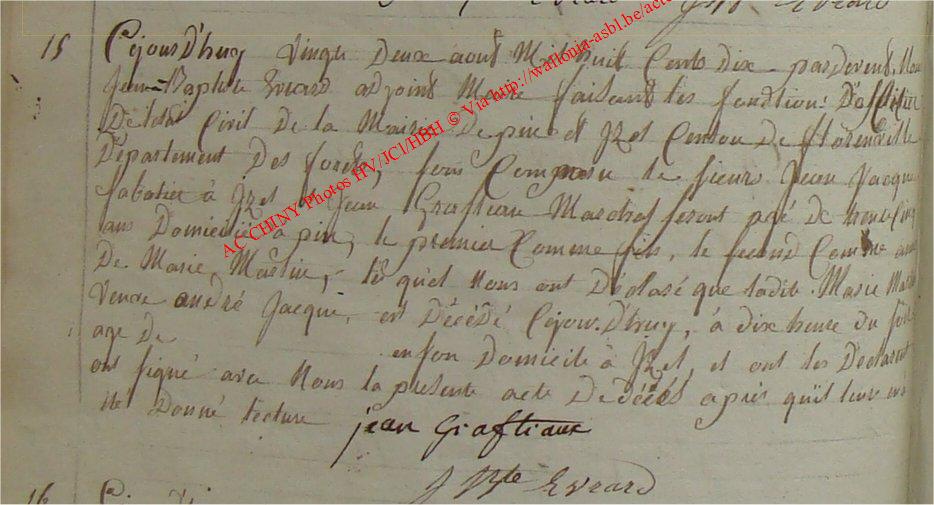 15 Cejourd'huy vingt deux aout Mil huit Cents dix pardevent Nou
Jean-Baptiste Evrard adjoint Maire faisant les fonctions D'officier
De letat Civil De la Mairie De pin et Izel Canton De florenville
Département Des forets, sont Comparu le sieurs Jean Jacque
Sabatier à Izel et Jean Graftiaux Marechal ferant agé de trente Cinq
ans Domicilié a pin, le premier Comme fils, le second Comme ami
De Marie Martin, les quel Nous ont Déclaré que ladite Marie Martin
Veuve andré Jacque, est Décédé Cejour-D'huy, à dix heure Du
age De en son Domicile à Izel, et ont les Declarant
ont signé avec Nous la présente acte De décès après quil leur en
été Donné lecture jean Graftiaux
J Bte Evrard
16
AC CHINY Photos HV/JCI/HBH © Via http://wallonia-asbl.be/acte